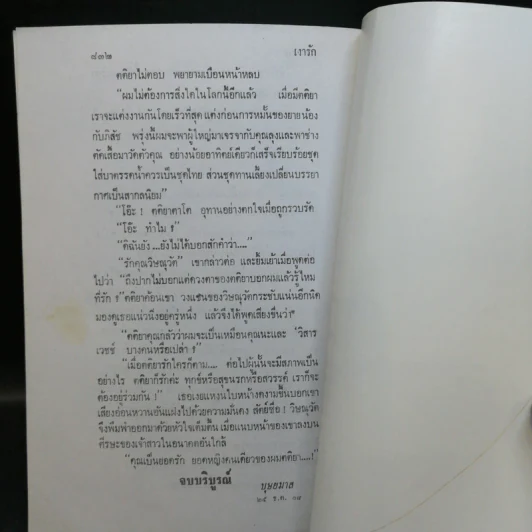 ๘๓๒ เงารัก
คติยาไม่ตอบ พยายามเบือนหน้าหลบ
“ผมไม่ต้องการสิ่งใดในโลกนี้อีกแล้ว เมื่อมีคติยา
เราจะแต่งงานกันโดยเร็วที่สุด แต่งก่อนการหมั้นของยายน้อง
กับภิสัช พรุ่งนี้ผมจะพาผู้ใหญ่มาเจรจากับคุณลุงและพาช่าง
ตัดเสื้อมาวัดตัวคุณ อย่างน้อยอาทิตย์เดียวก็เสร็จเรียบร้อยชุด
ใส่บาตรรดน้ำควรเป็นชุดไทย ส่วนชุดทานเลี้ยงเปลี่ยนบรรยา
กาศเป็นสากลนิยม”
“โอ๊ะ ! คติยาตาโต อุทานอย่างตกใจเมื่อถูกรวบรัด
“โอ๊ะ ทำไม ?”
“ดิฉันยัง...ยังไม่ได้บอกสักคำว่า....”
“รักคุณวิษณุวัต” เขากล่าวต่อ และยิ้มเย้าเมื่อพูดต่อ
ไปว่า “ถึงปากไม่บอกแต่ดวงตาของคติยาบอกผมแล้วรู้ไหม
ที่รัก ?” คติยาค้อนเขา วงแขนของวิษณุวัตกระชับแน่นอีกนิด
มองดูเธอแน่วนิ่งอยู่ครู่หนึ่ง แล้วจึงได้พูดเสียงขึ้นว่า
“คติยาคุณกลัวว่าผมจะเป็นเหมือนคุณนะและ วิสาร
เวชช์ บางคนหรือเปล่า ?”
“เมื่อคติยารักใครก็ตาม.... ต่อไปผู้นั้นจะมีสภาพเป็น
อย่างไร คติยาก็รักค่ะ ทุกข์หรือสุขนรกหรือสวรรค์ เราก็จะ
ต้องอยู่ร่วมกัน !” เธอเงยแหงนใบหน้างดงามขึ้นบอกเขา
เสียงอ่อนหวานอันแฝงไปด้วยความมั่นคง สัตย์ซื่อ ! วิษณุวัต
จึงพึมพำออกมาด้วยหัวใจเต็มตื้น เมื่อแนบหน้าของเขาลงบน
ศีรษะของเจ้าสาวในอนาคตอันใกล้
“คุณเป็นยอดรัก ยอดหญิงคนเดียวของผมคติยา....!”
จบบริบูรณ์
บุษยมาส
๑๕ ธ.ค. ๑๗